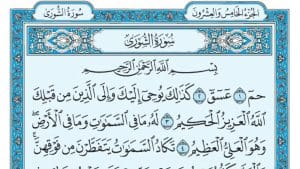 الجزء الخامس والعشرون
سورة الشورى
سُورَةُ الشُّورَىٰ
بِسْمِ اللَّهِ الرَّحْمَٰنِ الرَّحِيمِ
حمٓ ۝١ عٓسٓقٓ ۝٢ كَذَٰلِكَ يُوحِيٓ إِلَيْكَ وَإِلَى الَّذِينَ مِن قَبْلِكَ
اللَّهُ الْعَزِيزُ الْحَكِيمُ ۝٣ لَهُۥ مَا فِي السَّمَٰوَٰتِ وَمَا فِي الْأَرْضِ ۖ
وَهُوَ الْعَلِيُّ الْعَظِيمُ ۝٤ تَكَادُ السَّمَٰوَٰتُ يَتَفَطَّرْنَ مِن فَوْقِهِنَّ ۚ